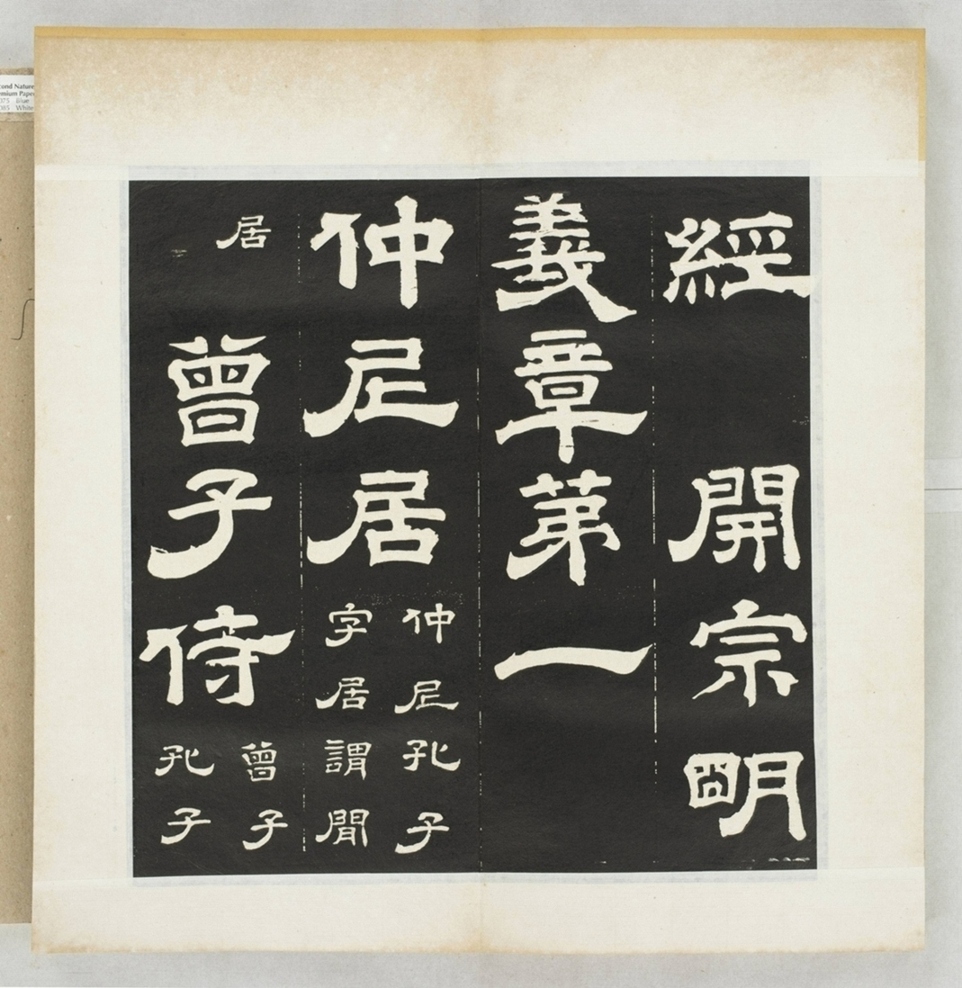 經 開宗明
義章苐一
仲尼居 仲尼孔子
字居謂閒
居 曾子侍 曾子
孔子
Nature
Blue
White